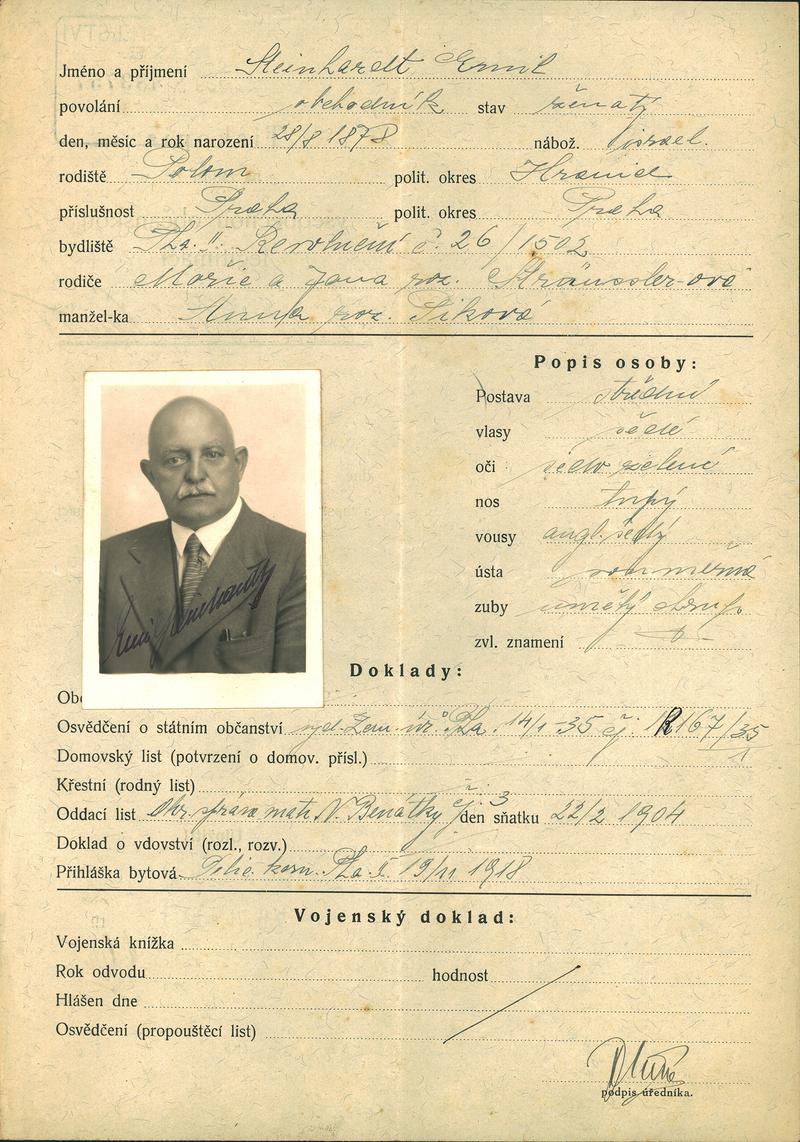 Jméno a příjmení Steinhardt Emil
povolání obchodník stav ženatý
den, měsíc a rok narození 28/8 1878 nábož. israel.
rodiště Polom polit. okres Hranice
příslušnost Praha polit. okres Praha
bydliště Pha. II. Revoluční č. 26/1502
rodiče Mořic a Jana roz. Sträussler-ová
manžel-ka Anna roz. Piková
Popis osoby:
Postava střední
vlasy šedé
oči šedo zelené
nos tupý
vousy angl. šedý
ústa souměrná
zuby umělý chrup.
zvl. znamení
Emil Steinhardt
Doklady:
Osvědčení o státním občanství vyd. Zem. úř. Pha. 14/1-35 čj. R167/35
1
Domovský list (potvrzení o domov. přísl.)
Křestní (rodný list)
Oddací list Okr. správa matr. N. Benátky č. 3 den sňatku 22/2 1904
Doklad o vdovství (rozl., rozv.)
Přihláška bytová Polic. kom. Pha. 19/11 1918
Vojenský doklad:
Vojenská knížka
Rok odvodu hodnost
Hlášen dne
Osvědčení (propouštěcí list)
podpis úředníka.